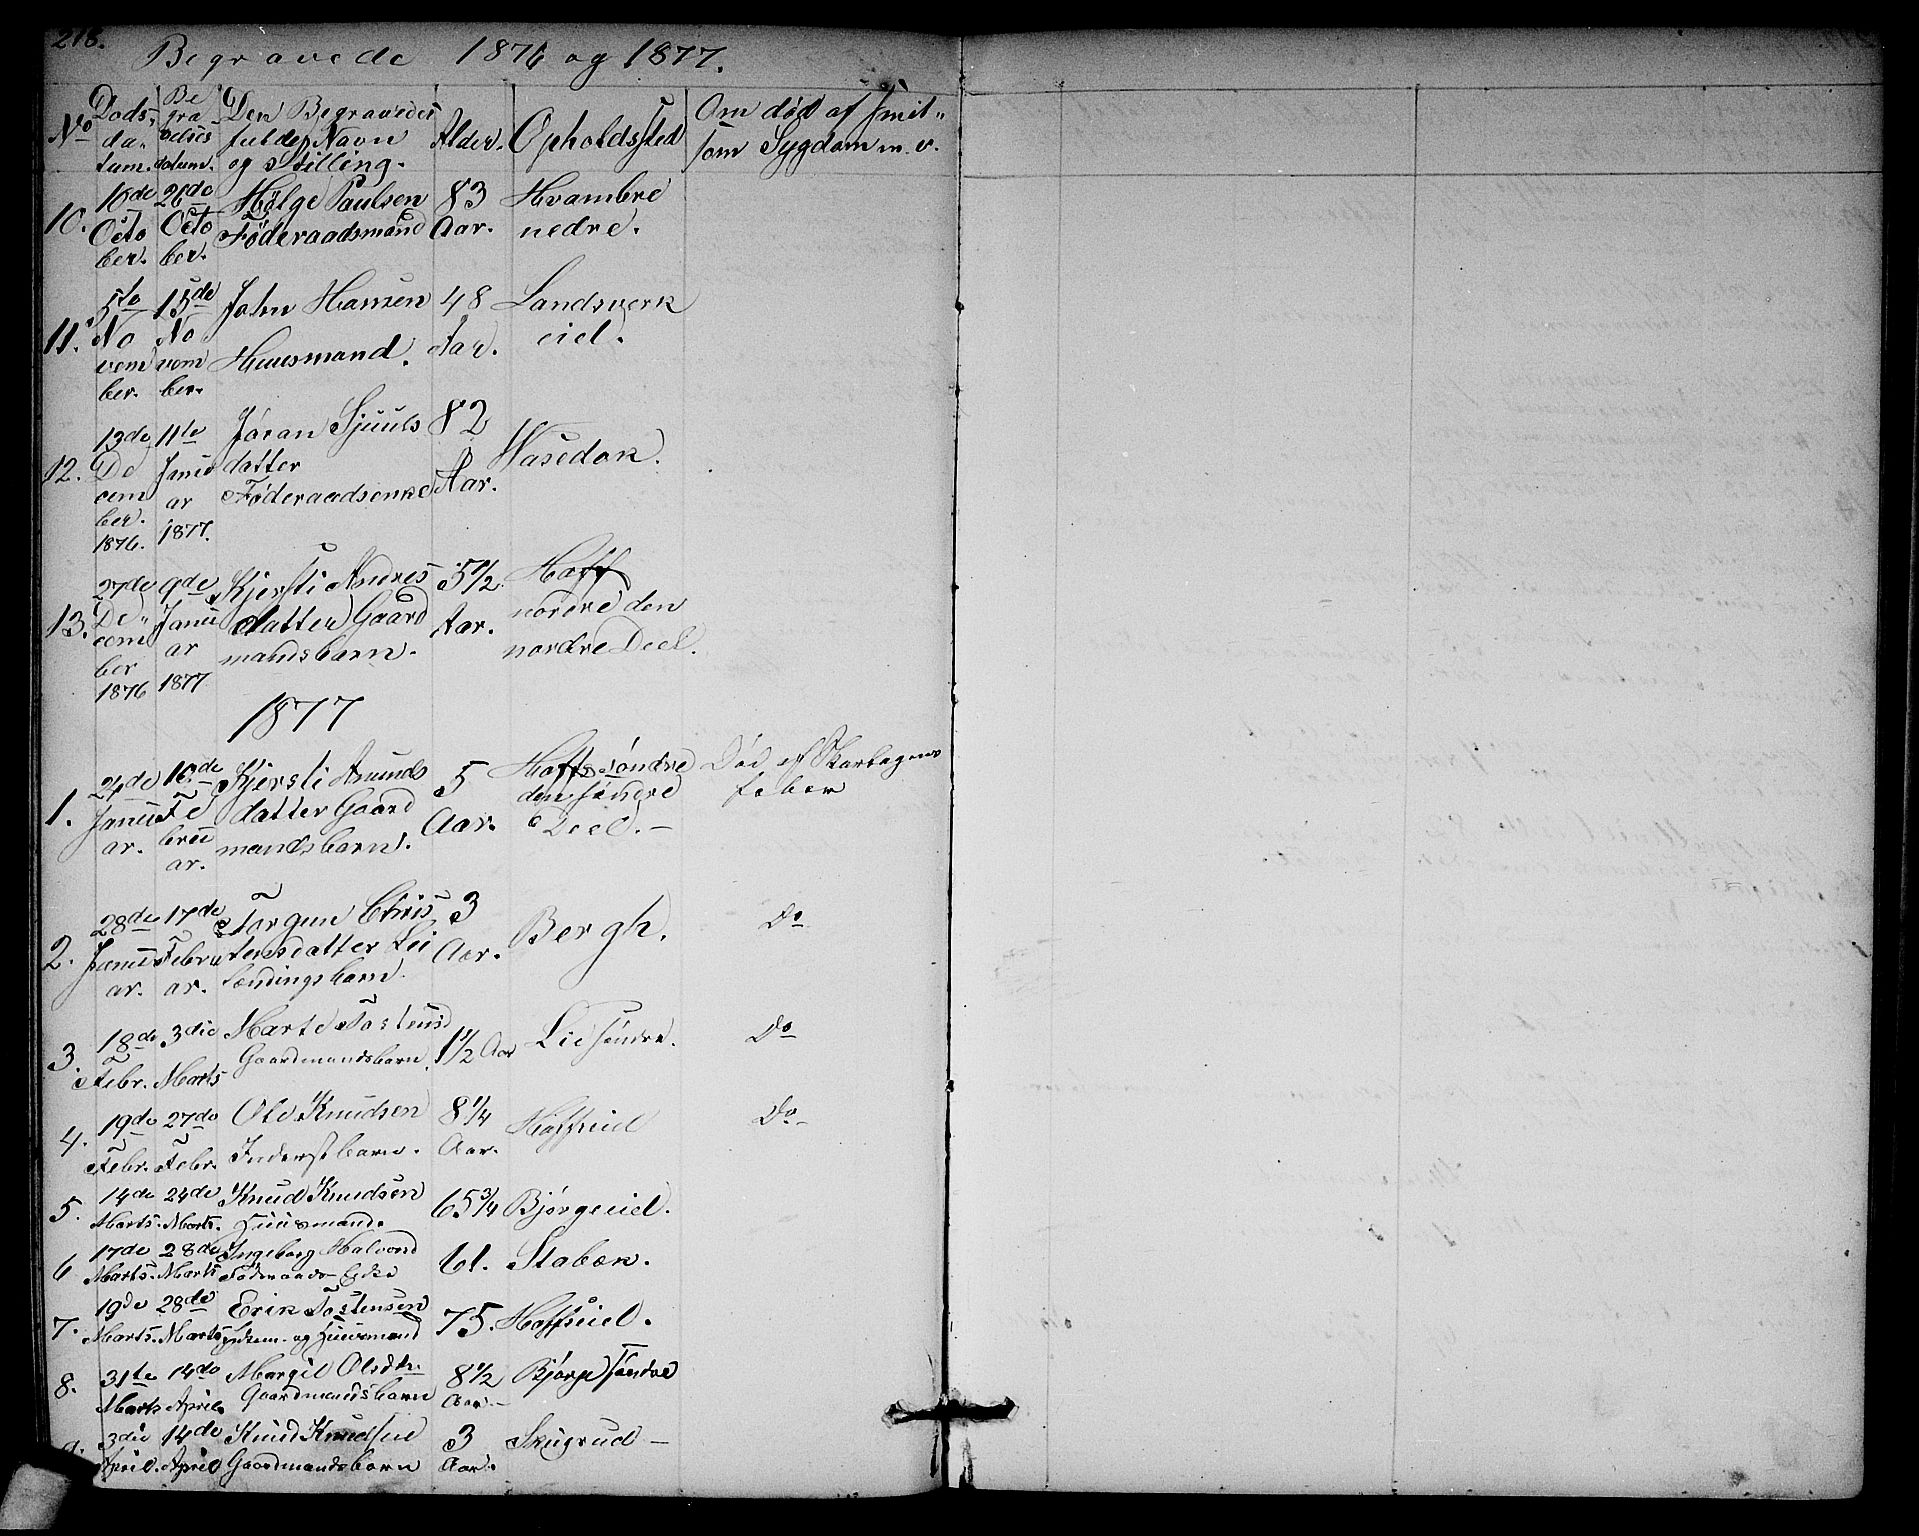 218.
Begravede 1876 og 1877.
No Døds-datum. Begravelses datum. Den Begravedes fulde Navn og Stilling. Alder. Opholdssted Om død af Smitsom Sygdom m. v.
10. 16de October. 26de October. Helge Paulsen Føderaadsmand 83 Aar. Hvambre nedre.
11. 5te November. 15de November. John Hansen Huusmand. 48 Aar. Landsverk eiel.
12. 13de December. 1876. 11te Januar 1877. Jøran Sjuulsdatter Føderaadsenke 82 Aar. Wasedok.
13. 27de December 1876 9de Januar 1877 Kjersti Andresdatter Gaardmandsbarn. 5 1/2 Aar. Hoff nordre den nordre Deel.
1877
1. 24de Januar. 16de Februar. Kjersti Amundsdatter Gaardmandsbarn. 5 Aar. Hoff søndre den søndre Deel.- Død af Skarlagensfeber
2. 28de Januar. 17de Februar. Torgun Christensdatter Leilændingsbarn 3 Aar. Bergh. Do
3. 18de Febr. 3die Marts Marte Tostensd Gaardmandsbarn. 1 1/2 Aar Lie søndre. Do
4. 19de Febr. 27de Febr. Ole Knudsen Inderstbarn. 8 1/4 Aar. Hoffseiel Do-
5. 14de Marts. 24de Marts. Knud Knudsen Huusmand. 65 3/4 Bjørgeeiel.
6 17de Marts. 28de Marts Ingeborg Halvorsd Føderaads- Enke 61. Stabæk.
7. 19de Marts. 28de Marts Erik Tostensen Enkem. og Huusmand 75. Hoffseiel.
8. 31te Marts 14de April. Margit Olsdtr. Gaardmandsbarn 8 1/2 Aar.- Bjørge søndre
9. 3die April. 14de April Knud Knudsen Gaardmandsbarn 3 Aar. Skugrud-